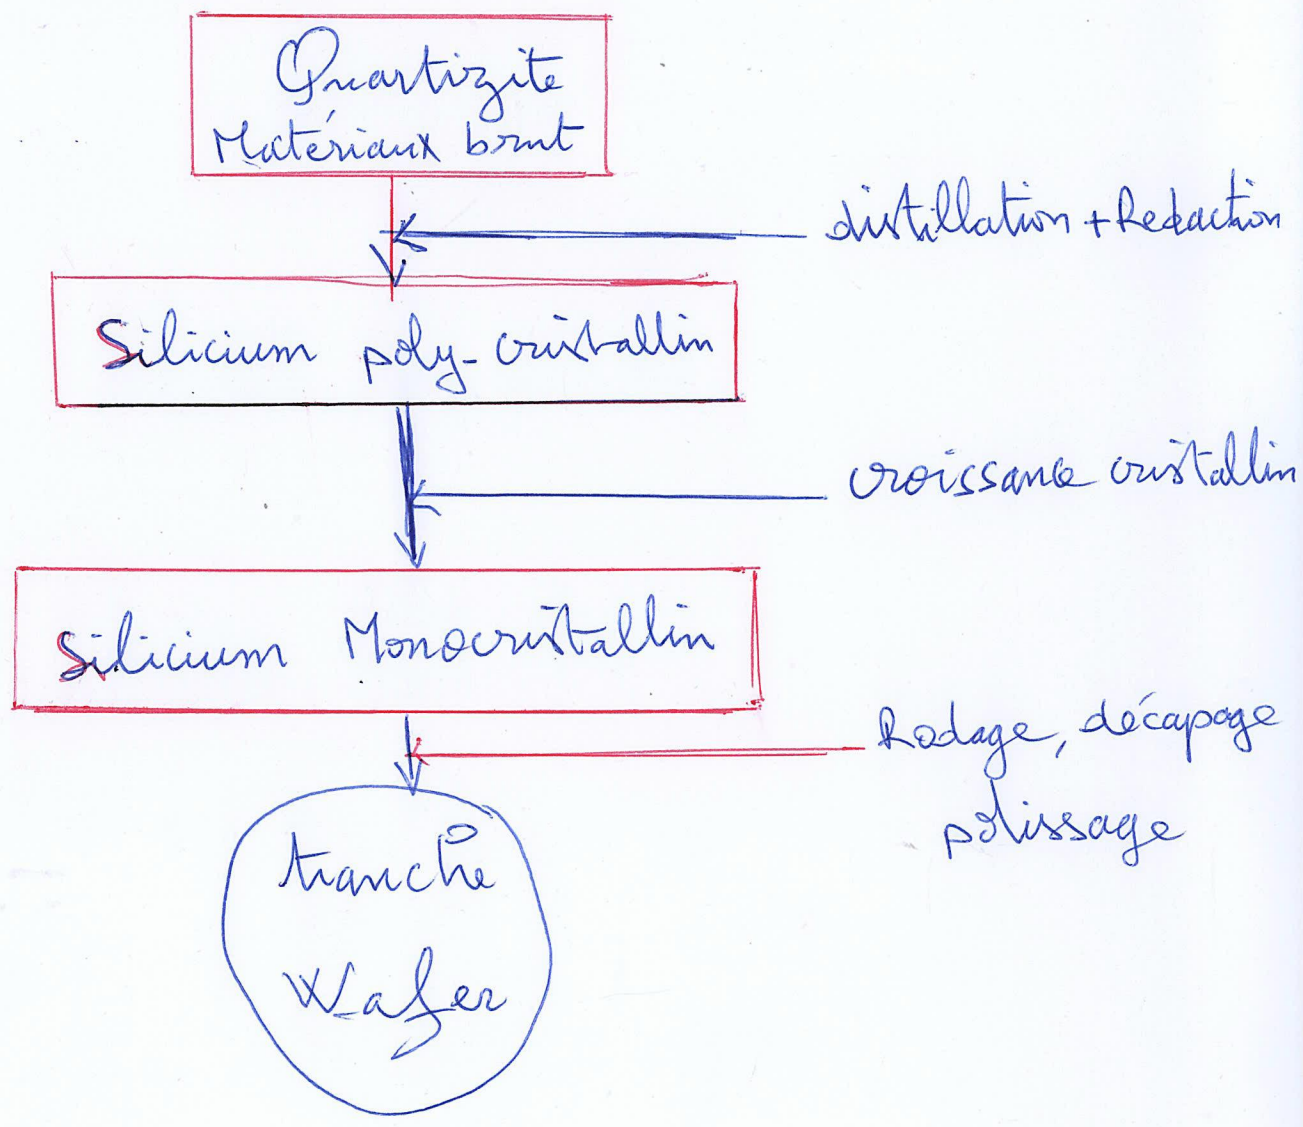 Quartizite
Matériaux brut
distillation + Redaction
Silicium poly-cristallin
croissance cristallin
Silicium Monocristallin
Rodage, décapage
polissage
tranche
Wafer